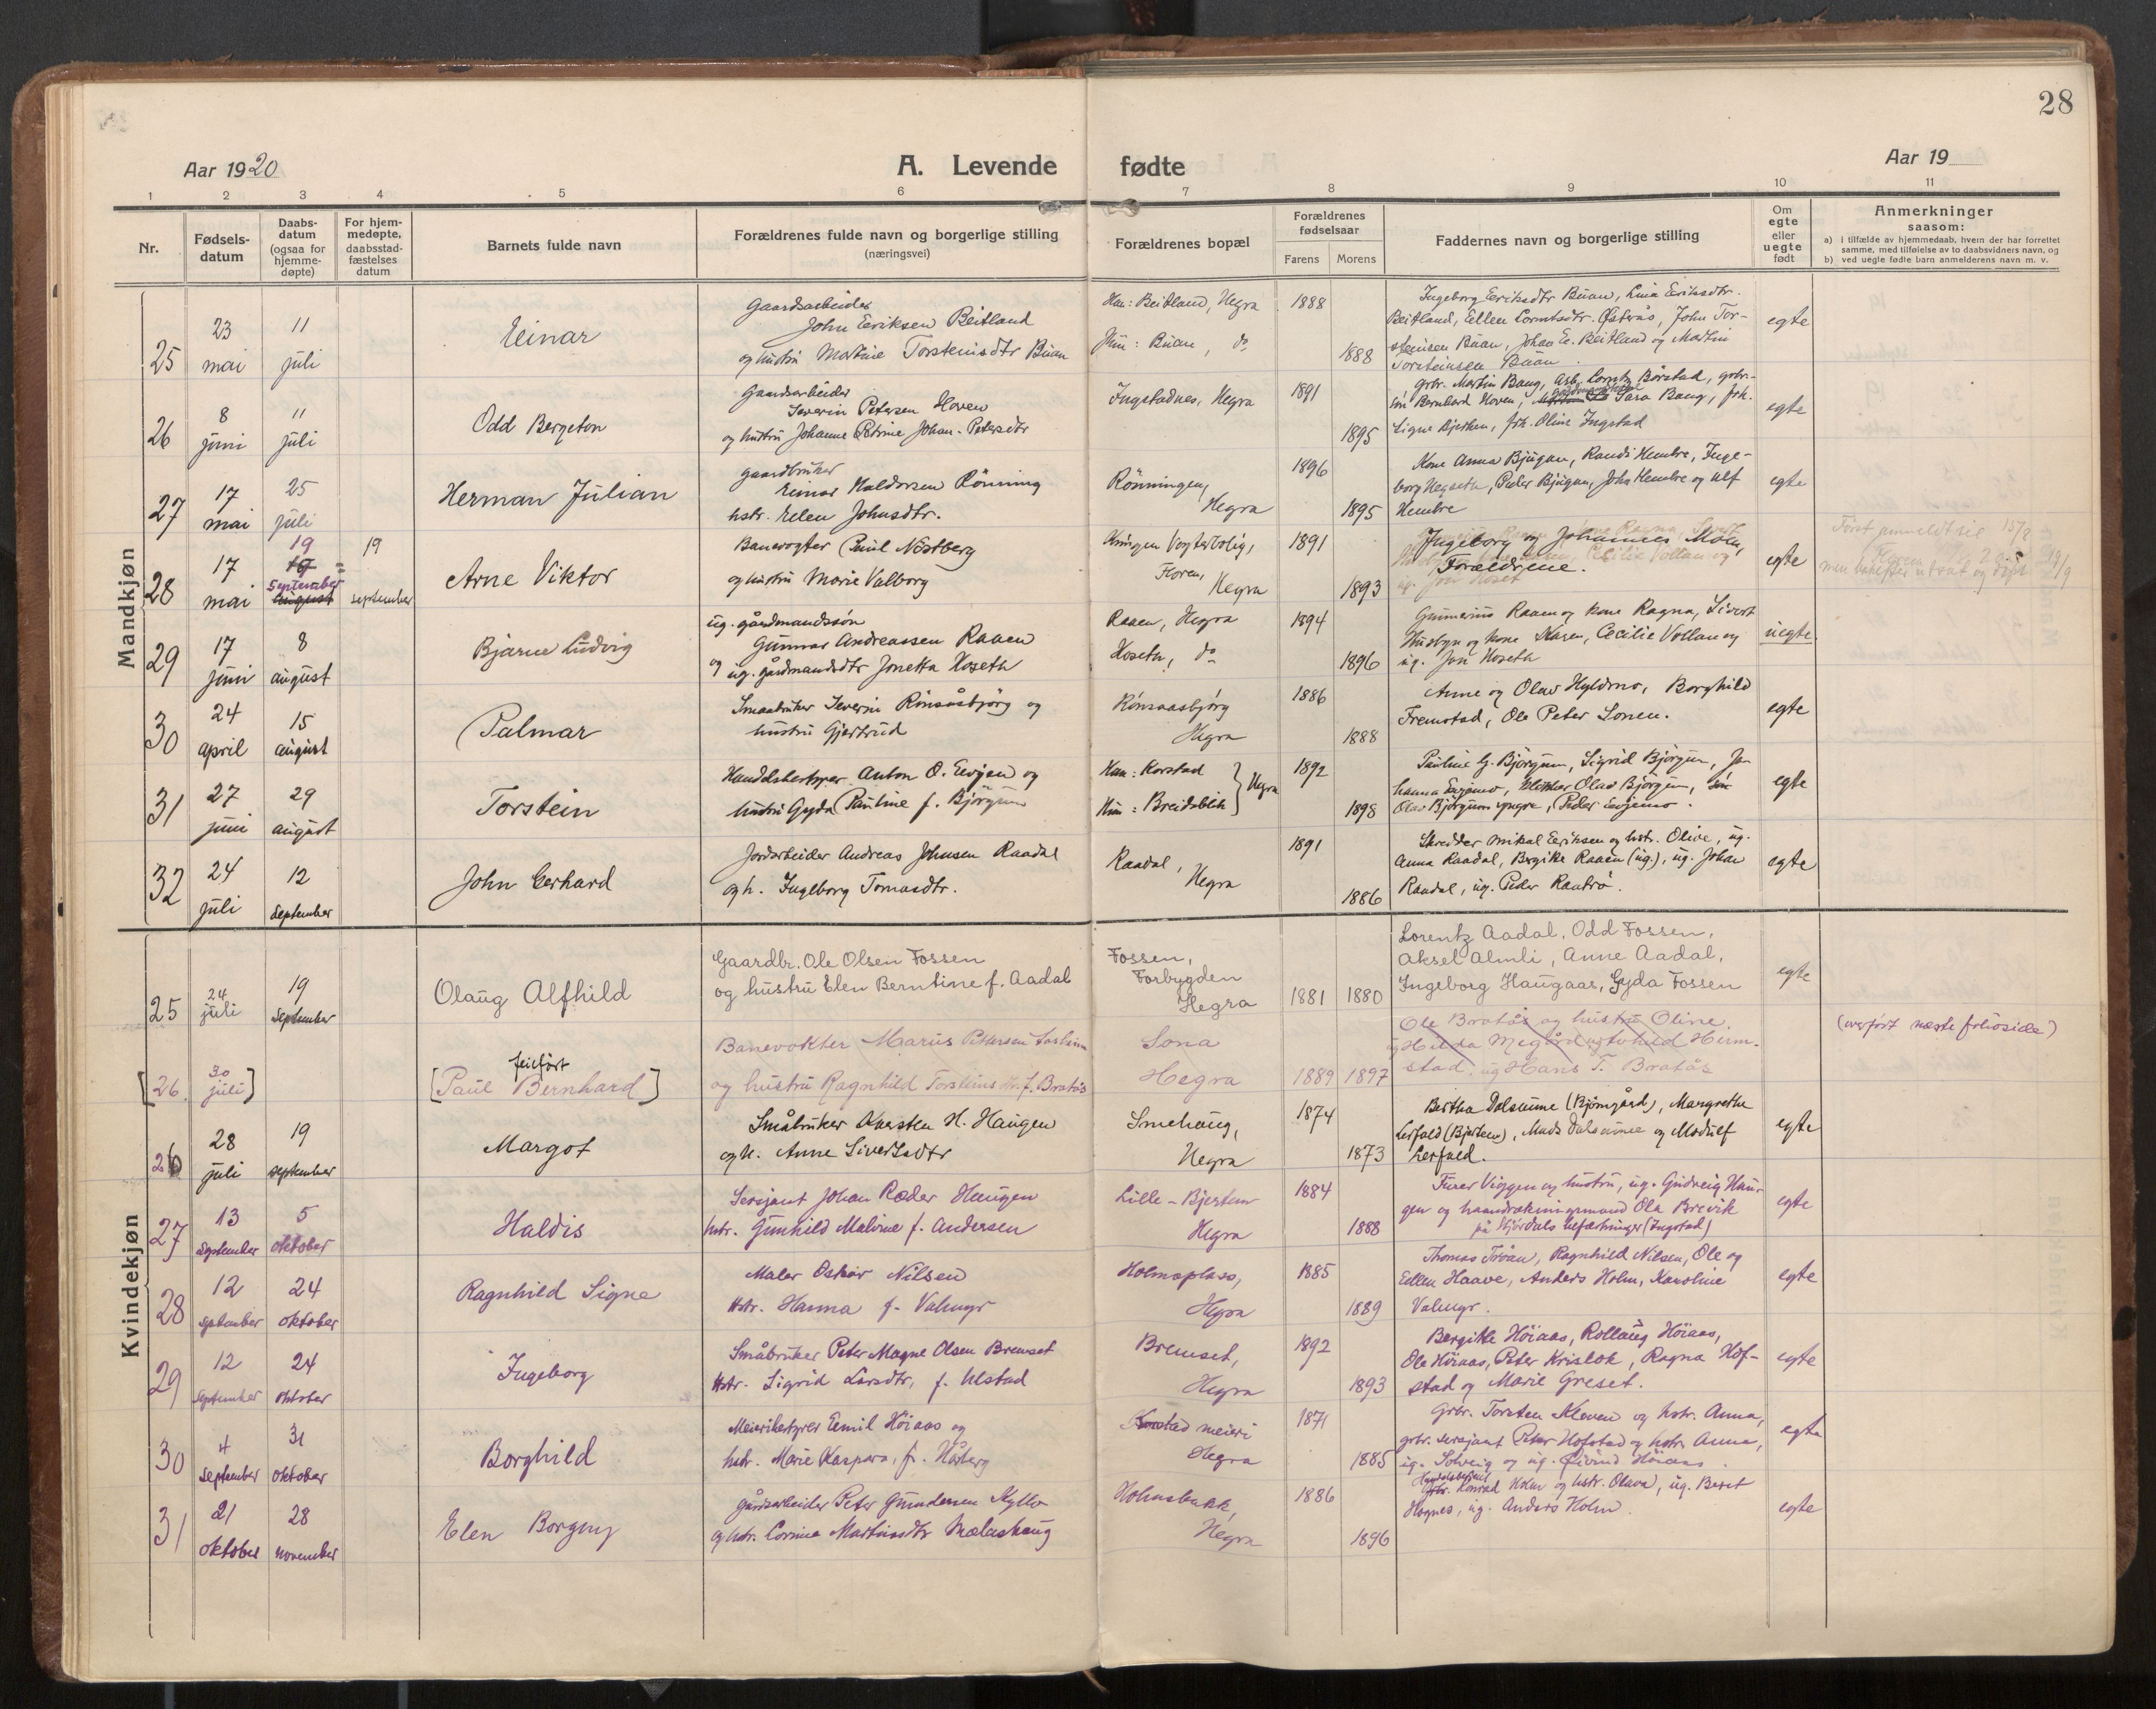 28
Aar 1920
A. Levende fødte
Aar 19
1 2 3 4 5 6 7 8 9 10 11
Nr.
Fødsels-
datum
Daabs-
datum
(ogsaa for
hjemme-
døpte)
For hjem-
medøpte,
daabsstad-
fæstelses
datum
Barnets fulde navn
Forældrenes fulde navn og borgerlige stilling
(næringsvei)
Forældrenes bopæl
Forældrenes
fødselsaar
Farens Morens
Faddernes navn og borgerlige stilling
Om
egte
eller
uegte
født
Anmerkninger
saasom:
a) i tilfælde av hjemmedaab, hvem der har forrettet
samme, med tilføielse av to daabsvidners navn, og
b) ved uegte fødte barn anmelderens navn m. v.
Mandkjøn
25
23
mai
11
juli
Einar
Gaardsarbeider
John Eeriksen Beitland
og hustru Martine Torsteinsdtr Buan
Han: Beitland, Hegra
Hun: Buan, do
1888
1888
Ingeborg Eeriksdtr Buan, Lina Eeriksdtr.
Beitland, Ellen Lorntsdtr. Østerås, John Tor-
steinsen Buan, Johan E. Beitland og Martin
Torsteinsen Buan.
egte
26
8
juni
11
juli
Odd Bergeton
Gaardsarbeider
Severin Petersen Hoven
og hustru Johanne Petrine Johan-Petersdtr
Ingstadnes, Hegra
1891
1895
grbr. Martin Bang, Arb. Lornts Børstad, grbr.-
søn Bernhard Hoven, Sara Bang, frk.
Signe Bjerken, frk. Oline Ingstad
egte
27
17
mai
25
juli
Herman Julian
gaardbruker
Einar Haldorsen Rönning
hstr. Elen Johnsdtr.
Rönningen,
Hegra
1896
1895
Kone Anna Bjugan, Randi Hembre, Inge-
borg Hegseth, Peder Bjugan, John Hembre og Ulf
Hembre
egte
28
17
mai
19
september
august
19
september
Arne Viktor
Banevogter Paul Nöstberg
og hustru Marie Valborg
Vogterbolig,
Floren,
Hegra
1891
1893
Ingeborg og Johannes Moen,
Forældrene.
egte
Först anmeldt til 15/8
men utsat og döpt 19/9
29
17
juni
8
august
Bjarne Ludvig
ug. gårdmandssøn
Gunnar Andreassen Raaen
og ug. gårdmandsdtr Jonetta Hoseth
Raaen, Hegra
Hoseth, do
1894
1896
Gunnerius Raaen og kone Ragna, Sivert
Husbyn og kone Karen, Cecilie Vollan og
ug. Jon Hoseth
uegte
30
24
april
15
august
Palmar
Smaabruker Severin Rönsåsbjörg og
hustru Gjertrud
Rönsaasbjörg
Hegra
1886
1888
Anne og Olav Hyldmo, Borghild
Fremstad, Ole Peter Sonen.
egte
31
27
juni
29
august
Torstein
Handelsbestyrer Anton O. Evjen og
hustru Gyda Pauline f. Björgum
Han: Korstad
Hun: Breidablik
Hegra
1892
1898
Pauline G. Björgum, Sigrid Björgum, Jo-
hanna Evjemo, Klokker Olav Björgum, søn
Olav Björgum yngre, Peder Evjemo.
egte
32
24
juli
12
september
John Gerhard
Jordarbeider Andreas Johnsen Raadal
og h. Ingeborg Tomasdtr.
Raadal,
Hegra
1891
1886
Skredder Mikal Eeriksen og hstr. Olive, ug.
Anna Raadal, Bergitte Raaen (ug.), ug. Johan
Raadal, ug. Peder Raatrö.
egte
Kvindekjøn
25
24
juli
19
september
Olaug Alfhild
Gaardbr. Ole Olsen Fossen
og hustru Elen Berntine f. Aadal
Fossen,
Forbygden
Hegra
1881 1880
Lorentz Aadal, Odd Fossen,
Aksel Almli, Anne Aadal,
Ingeborg Haugaas, Gyda Fossen
egte
[26.
30
juli]
feilført
[Paul Bernhard]
Banevokter Marius Pettersen
og hustru Ragnhild Torsteins dtr. f. Bratås
Sona
Hegra
1889 1897
Ole Bratås og hustru Oline
ug Hilda Megård og Hem-
stad, ug Hans T. Bratås
(overfört næste folioside)
26
28
juli
19
september
Margot
Småbruker Karsten H. Haugen
og h. Anne Sivertsdtr
Smehaug,
Hegra
1874
1873
Bertha Dalsaune (Bjørngård), Margrethe
Lerfald (Bjertem), Mads Dalsaune og Modulf
Lerfald.
egte
27
13
september
5
oktober
Haldis
Sersjant Johan Røder Haugen
hstr. Gunhild Malvine f. Andersen
Lille-Bjertem
Hegra
1884
1888
Furer Viggen og hustru, ug. Gudveig Hau-
gen og haandverkningsmand Ola Brevik
på Stjørdals befæstninger (Ingstad)
egte
28
12
september
24
oktober
Ragnhild Signe
Maler Oskar Nilsen
Hstr. Hanna f. Valungr
Holmoplass,
Hegra
1885
1889
Thomas Troan, Ragnhild Nilsen, Ole og
Ellen Haave, Anders Holm, Karoline
Valungr.
egte
29
12
september
24
oktober
Ingeborg
Småbruker Peter Magne Olsen Bremset
Hstr. Sigrid Larsdtr, f. Ulstad
Bremset,
Hegra
1892
1893
Bergitte Höiaas, Rollaug Höiaas,
Ole Höiaas, Peter Krislok, Ragna Hof-
stad og Marie Greset.
egte
30
4
september
31
oktober
Borghild
Meieribestyrer Eemil Höiaas og
hstr. Marie Kaspara, f. Hårberg
Korstad meieri
Hegra
1871
1885
Grbr. Torsten Kleven og hstr. Anna,
grbr. sersjant Peter Hofstad og hstr. Anna,
ug. Solveig og ug. Eivind Höiaas.
egte
31
21
oktober
28
november
Elen Borgny
gårdsarbeider Peter Gundersen Kyllo
og hstr. Corina Martinsdtr Mælashaug
Holmsbakk,
Hegra
1886
1896
Handelsbetjent
Konrad Holm og hstr. Olava, ug. Beret
Hognes, ug. Anders Holm.
egte